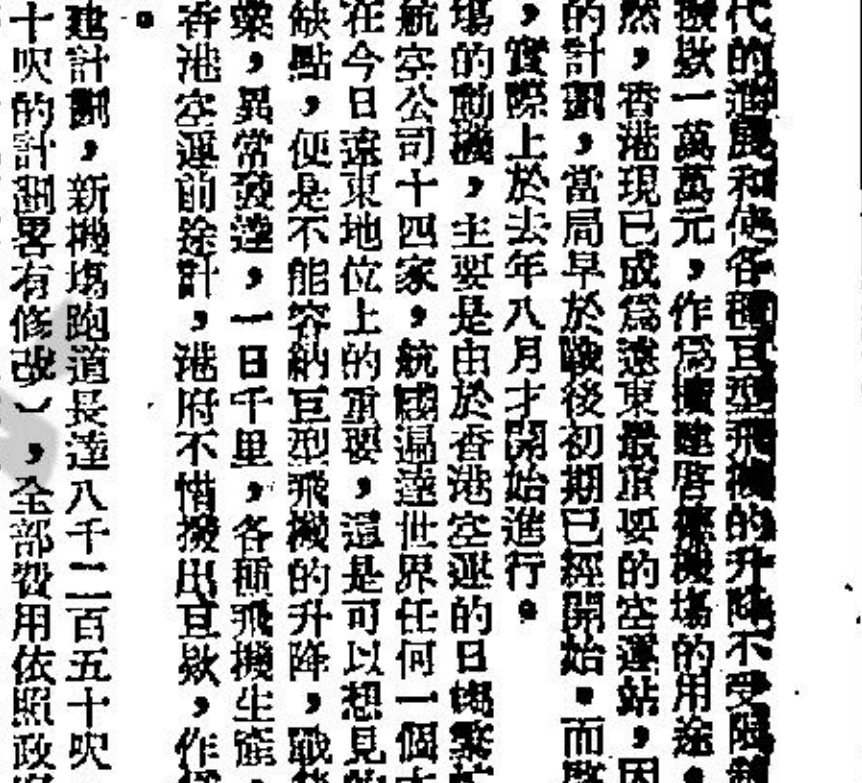 代的進展和使各種巨型飛機的升降不受限制
撥欵一萬萬元，作爲擴建啓德機塲的用途。
然，香港現已成爲遠東最重要的空運站，因
的計劃，當局早於戰後初期已經開始。而
，實際上於去年八月才開始進行。
塲的動機，主要是由於香港空運的日趨繁忙
航空公司十四家，航綫遍達世界任何一個
在今日遠東地位上的重要，這是可以想見的
缺點，便是不能容納巨型飛機的升降，戰
業，異常發達，一日千里，各種飛機生產，
香港空運前途計，港府不惜撥出巨欵，作
。
建計劃，新機塲跑道長達八千二百五十呎
十呎的計劃畧有修改），全部費用依照政